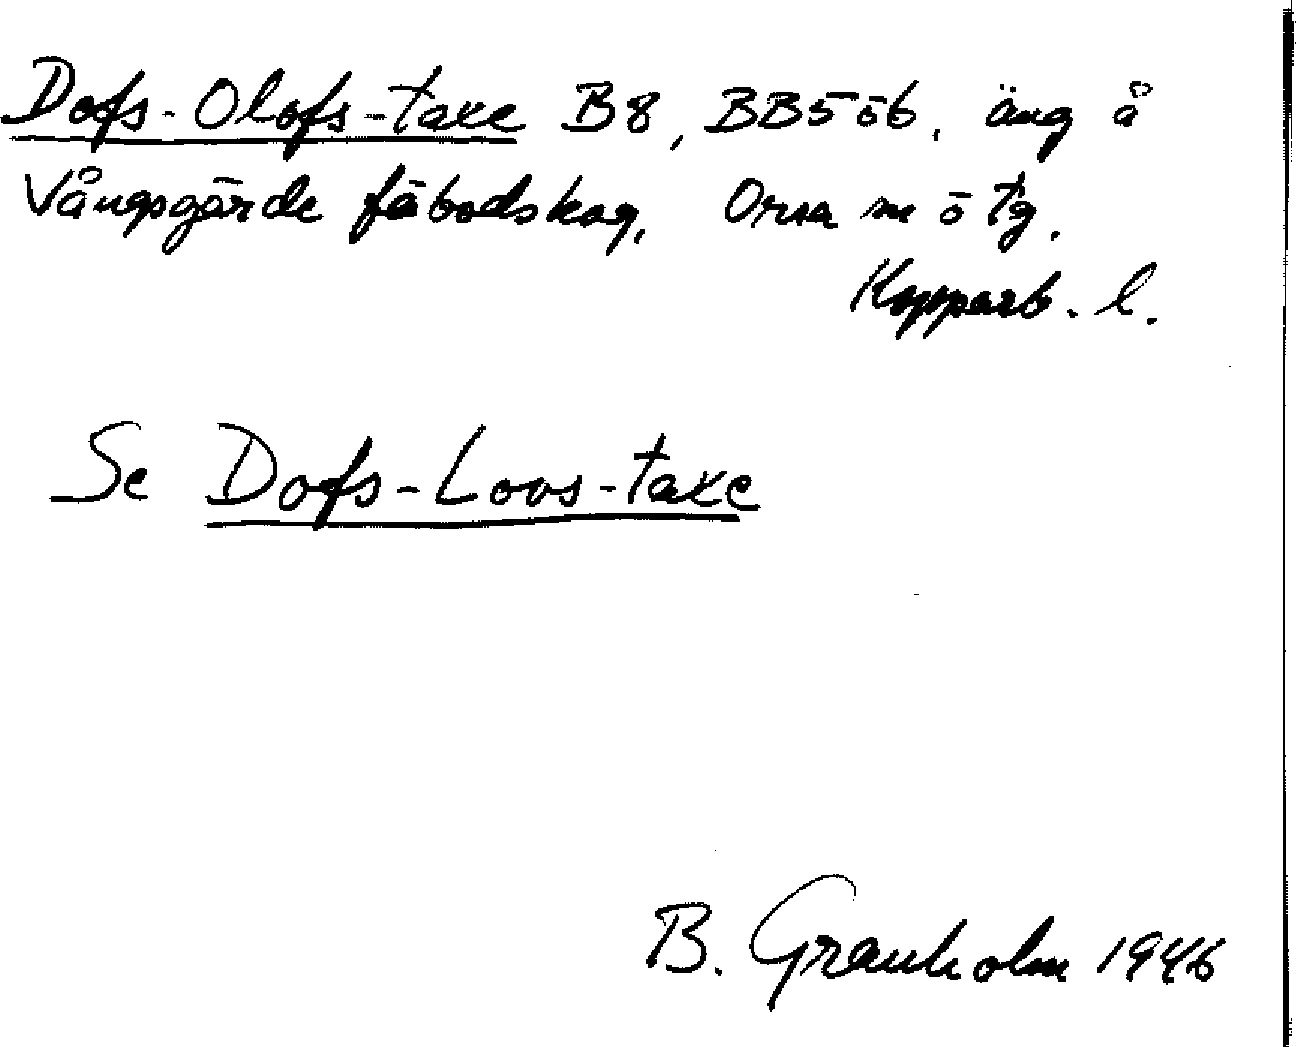 Dofs-Olofs-täxe B8, BB5öb, äng å
Vångsgärde fäbodskog, Orsa sn ö tg.
Kopparb. l.
Se Dofs-Loos-täxe
B. Granholm 1946